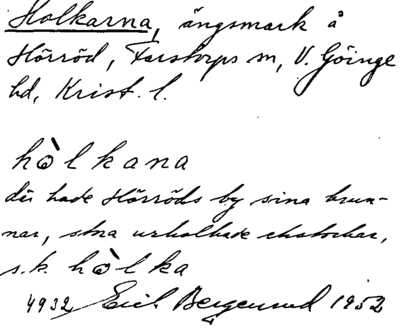 Holkarna, ängsmark å
Hörröd, Farstorps sn, V. Göinge
hd, Krist. l.
hòlkana
där hade Hörröds by sina brun-
nar, stora urholkade ekstockar,
s.k. hòlka
4932 Erich Bergenrud 1952